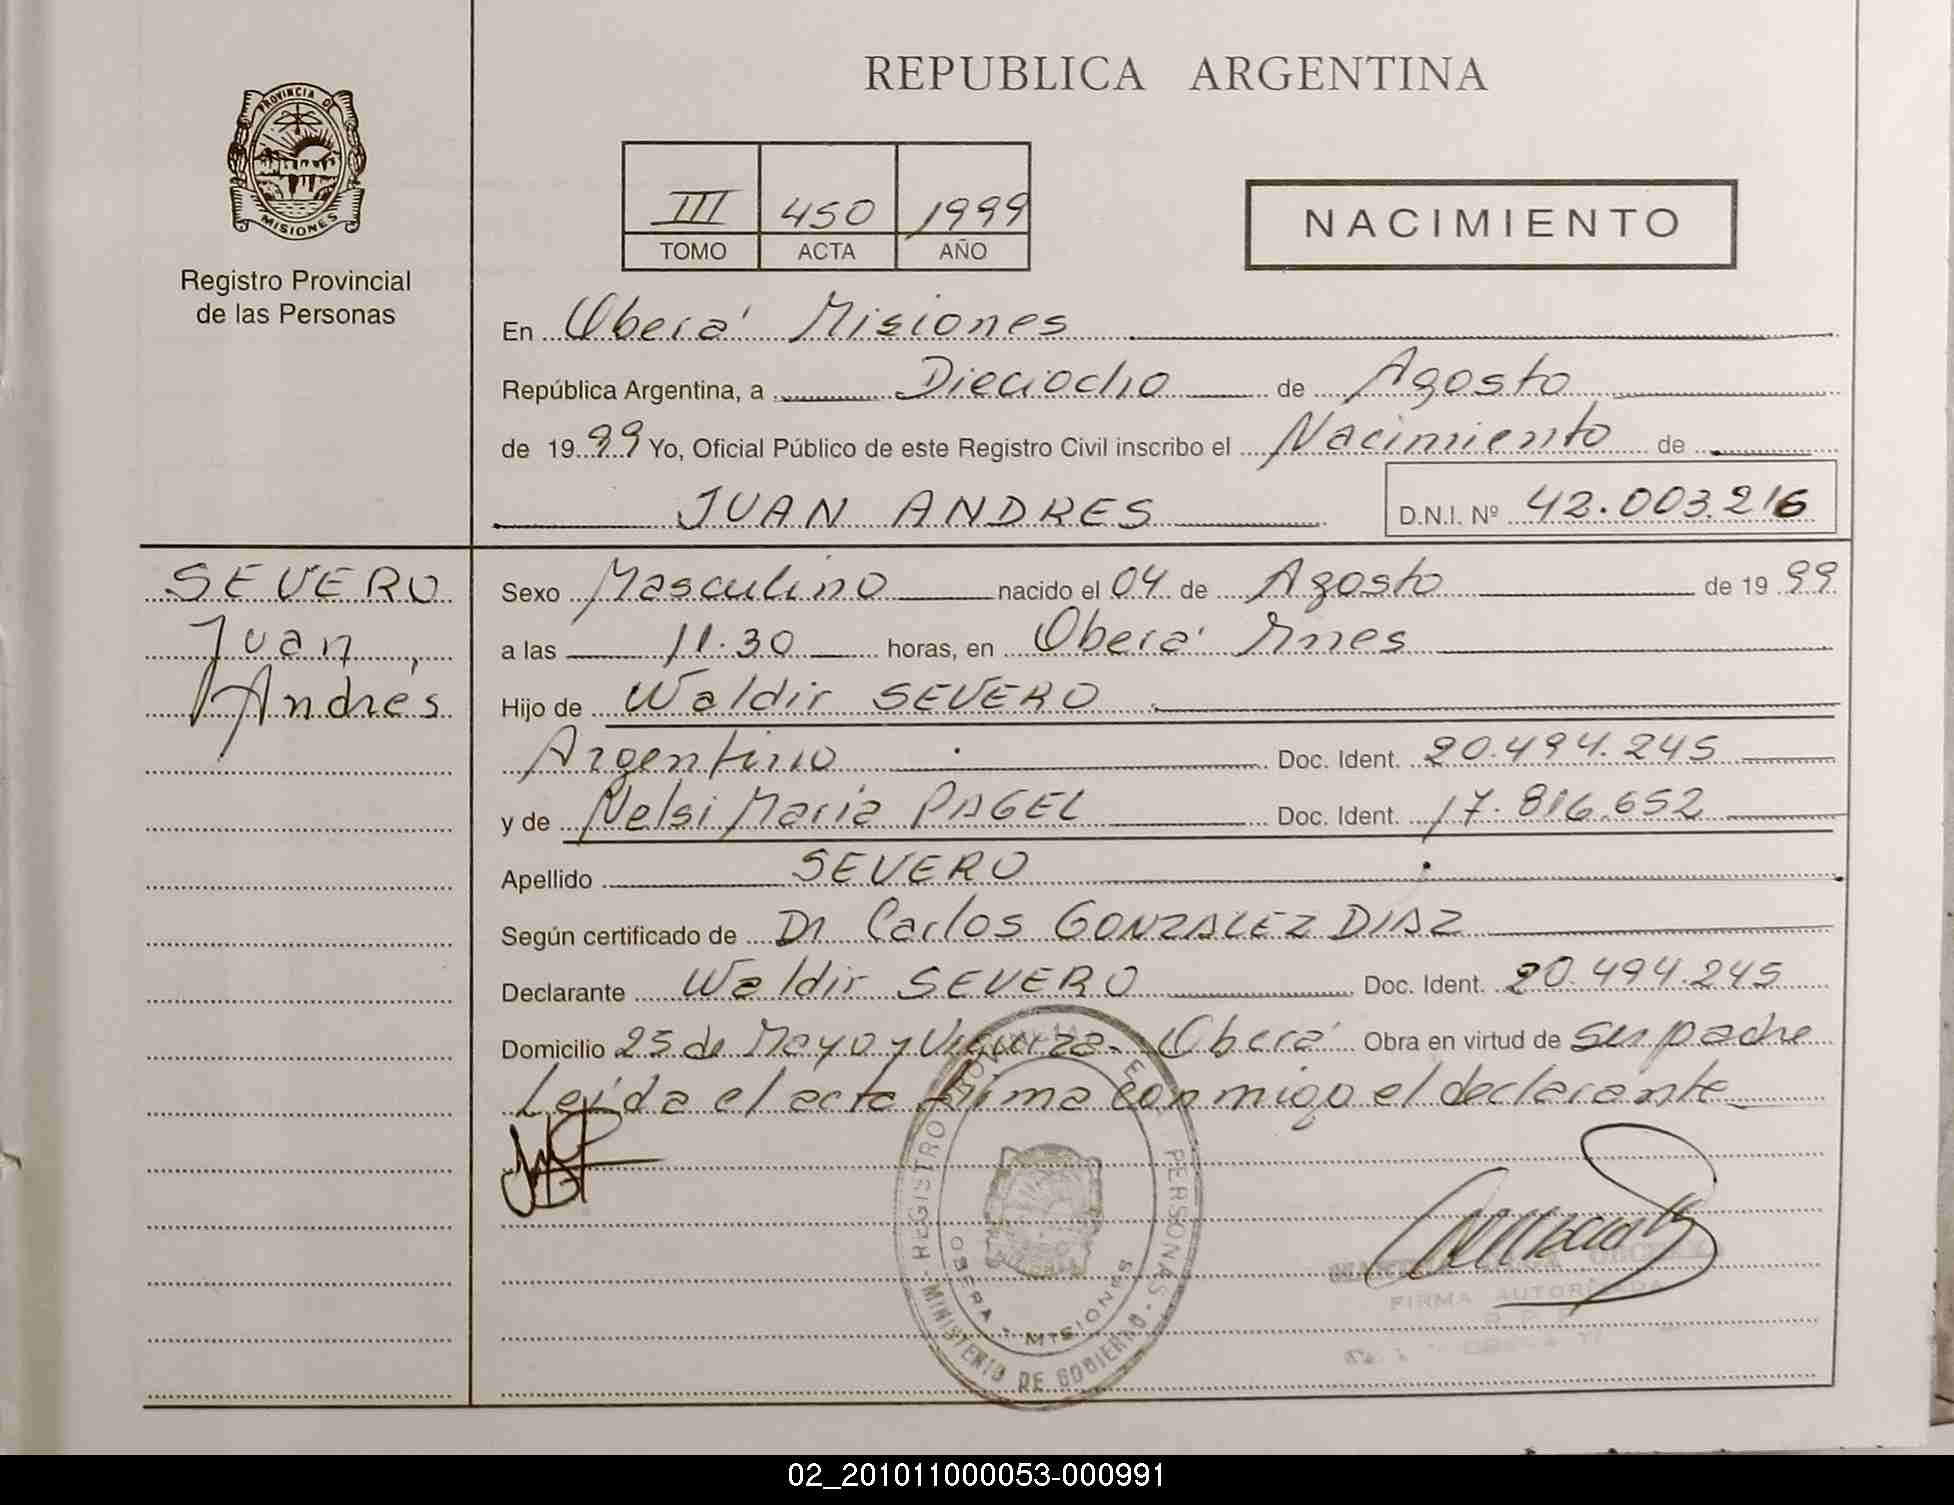 PROVINCIA DE
MISIONES
Registro Provincial
de las Personas
REPUBLICA ARGENTINA
III 450 1999
TOMO ACTA AÑO
NACIMIENTO
En Oberá Misiones
República Argentina, a Dieciocho de Agosto
de 19 99 Yo, Oficial Público de este Registro Civil inscribo el Nacimiento de
JUAN ANDRES D.N.I. Nº 42.003.216
SEVERO
Juan
Andrés
Sexo Masculino nacido el 04 de Agosto de 19 99
a las 11.30 horas, en Oberá Mnes
Hijo de Waldir SEVERO
Argentino Doc. Ident. 20.494.245
y de Nelsi Maria PAGEL Doc. Ident. 17.816.652
Apellido SEVERO
Según certificado de Dr Carlos GONZALEZ DIAZ
Declarante Waldir SEVERO Doc. Ident. 20.494.245
Domicilio 25 de Mayo y Oberá Obra en virtud de su padre
Leída el acta firma conmigo el declarante
REGISTRO PERSONAS
MINISTERIO DE GOBIERNO
OBERA - MISIONES
FIRMA AUTORIZADA
02_201011000053-000991